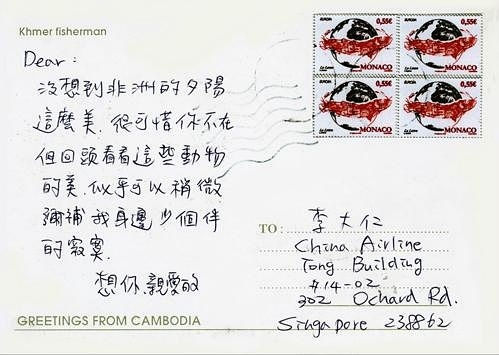 Khmer fisherman
Dear:
沒想到非洲的夕陽
這麼美. 很可惜你不在
但回頭看看這些動物
的美. 似乎可以稍微
彌補我身邊少個伴
的寂寞.
想你. 親愛的
GREETINGS FROM CAMBODIA
EUROPA 0,55€
MONACO
EUROPA 0,55€
MONACO
EUROPA 0,55€
MONACO
EUROPA 0,55€
MONACO
TO:
李大仁
China Airline
Tong Building
#14-02
302 Ochard Rd.
Singapore 238862